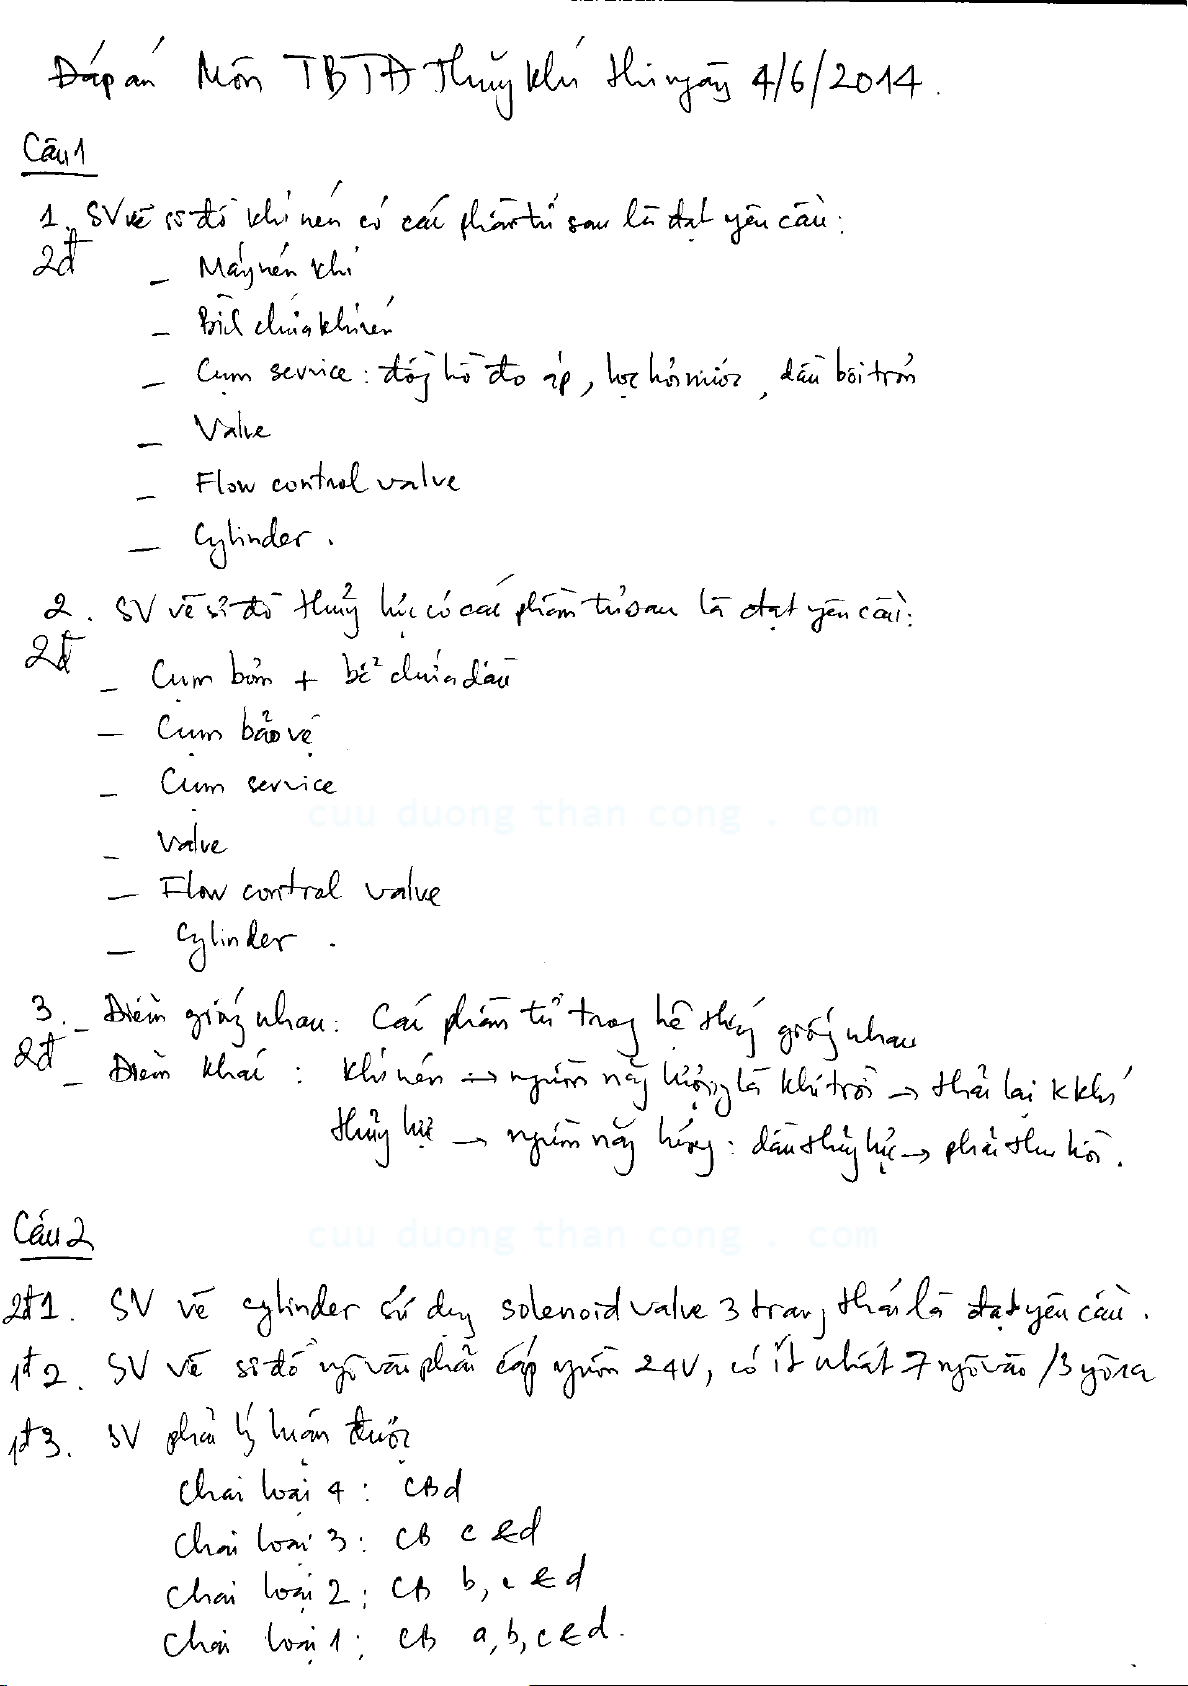 Đáp án Môn TBTĐ Thủy khí thi ngày 4/6/2014.
Câu 1
1. SV vẽ sơ đồ khí nén có các phần tử sau là đạt yêu cầu:
2đ
_ Máy nén khí
_ Bình chứa khí nén
_ Cụm service: đồng hồ đo áp, lọc hơi nước, dầu bôi trơn
_ Valve
_ Flow control valve
_ Cylinder.
2. SV vẽ sơ đồ thủy lực có các phần tử sau là đạt yêu cầu:
2đ
_ Cụm bơm + bể chứa dầu
_ Cụm bảo vệ
_ Cụm service
cuu duong than cong . com
_ Valve
_ Flow control valve
_ Cylinder.
3. _ Điểm giống nhau: Các phần tử trong hệ thống giống nhau
2đ _ Điểm khác: khí nén → nguồn năng lượng là khí trời → thải lại k khí
thủy lực → nguồn năng lượng: dầu thủy lực → phải thu hồi.
Câu 2
cuu duong than cong . com
2đ 1. SV vẽ cylinder sử dụng solenoid valve 3 trạng thái là đạt yêu cầu.
1đ 2. SV vẽ sơ đồ ngõ vào phải cấp nguồn 24V, có ít nhất 7 ngõ vào /3 ngõ ra
1đ 3. SV phải lý luận được
Chai loại 4: CB d
Chai loại 3: CB c & d
Chai loại 2: CB b, c & d
Chai loại 1: CB a, b, c & d.